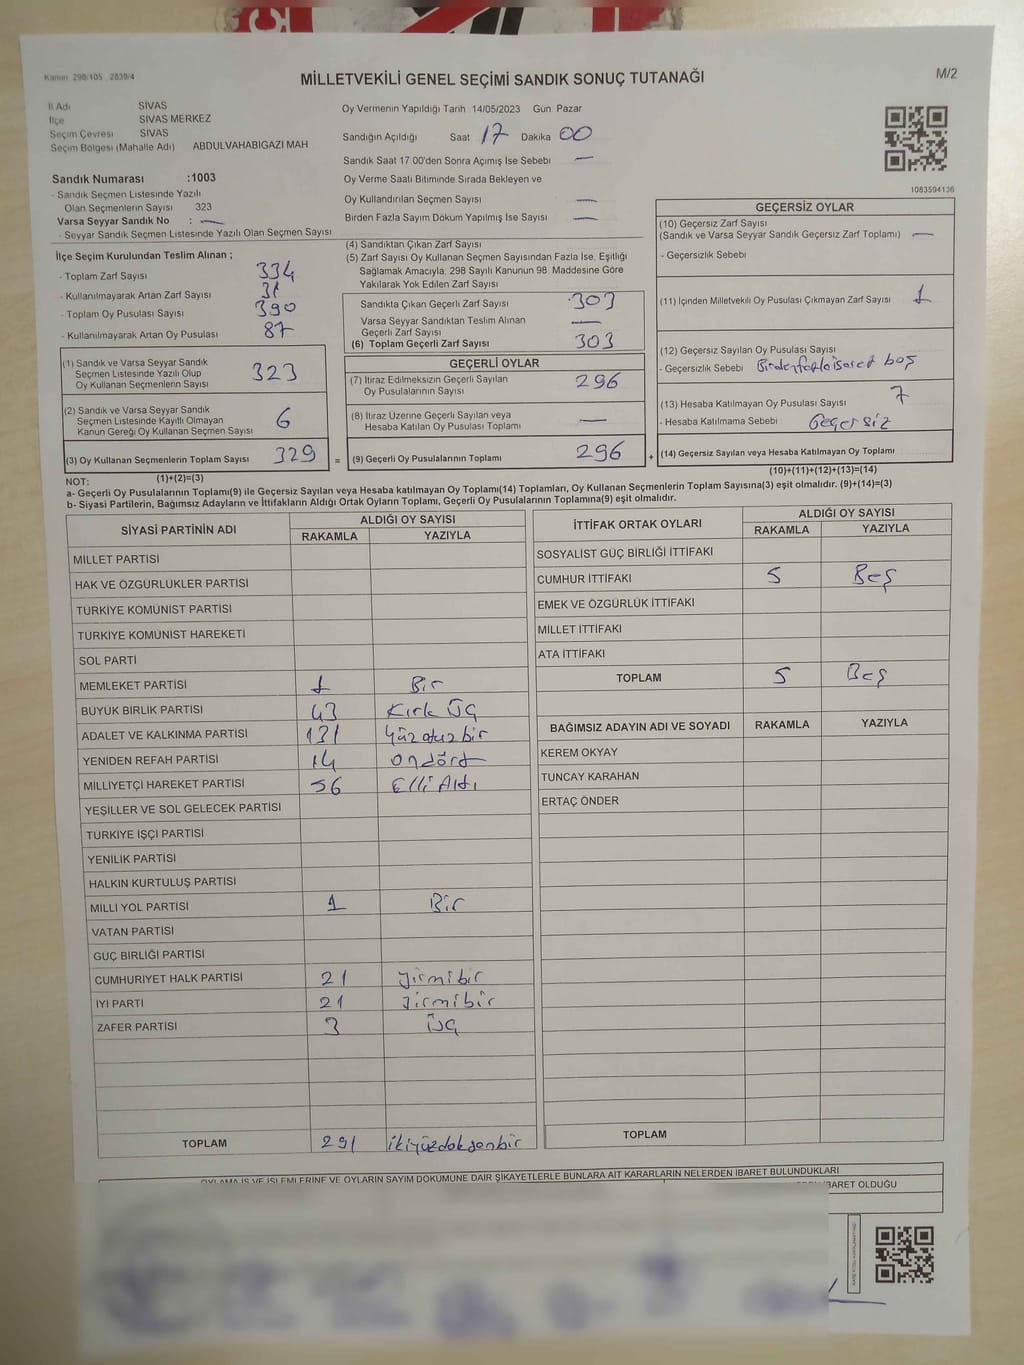 Kanun 298/105 2839/4
MİLLETVEKİLİ GENEL SEÇİMİ SANDIK SONUÇ TUTANAĞI
M/2
İl Adı SİVAS
İlçe SİVAS MERKEZ
Seçim Çevresi SİVAS
Seçim Bölgesi (Mahalle Adı) ABDULVAHABIGAZI MAH
Sandık Numarası :1003
- Sandık Seçmen Listesinde Yazılı
Olan Seçmenlerin Sayısı 323
Varsa Seyyar Sandık No : —
- Seyyar Sandık Seçmen Listesinde Yazılı Olan Seçmen Sayısı
Oy Vermenin Yapıldığı Tarih 14/05/2023 Gün Pazar
Sandığın Açıldığı Saat 17 Dakika 00
Sandık Saat 17 00'den Sonra Açımış İse Sebebi —
Oy Verme Saati Bitiminde Sırada Bekleyen ve
Oy Kullandırılan Seçmen Sayısı —
Birden Fazla Sayım Döküm Yapılmış İse Sayısı —
1083594136
İlçe Seçim Kurulundan Teslim Alınan ;
- Toplam Zarf Sayısı 334
- Kullanılmayarak Artan Zarf Sayısı 31
- Toplam Oy Pusulası Sayısı 390
- Kullanılmayarak Artan Oy Pusulası 87
(1) Sandık ve Varsa Seyyar Sandık
Seçmen Listesinde Yazılı Olup
Oy Kullanan Seçmenlerin Sayısı 323
(2) Sandık ve Varsa Seyyar Sandık
Seçmen Listesinde Kayıtlı Olmayan
Kanun Gereği Oy Kullanan Seçmen Sayısı 6
(3) Oy Kullanan Seçmenlerin Toplam Sayısı 329 =
(1)+(2)=(3)
(4) Sandıktan Çıkan Zarf Sayısı
(5) Zarf Sayısı Oy Kullanan Seçmen Sayısından Fazla İse, Eşitliği
Sağlamak Amacıyla, 298 Sayılı Kanunun 98. Maddesine Göre
Yakılarak Yok Edilen Zarf Sayısı
Sandıkta Çıkan Geçerli Zarf Sayısı 303
Varsa Seyyar Sandıktan Teslim Alınan
Geçerli Zarf Sayısı —
(6) Toplam Geçerli Zarf Sayısı 303
GEÇERLİ OYLAR
(7) İtiraz Edilmeksizin Geçerli Sayılan
Oy Pusulalarının Sayısı 296
(8) İtiraz Üzerine Geçerli Sayılan veya
Hesaba Katılan Oy Pusulası Toplamı —
(9) Geçerli Oy Pusulalarının Toplamı 296 +
GEÇERSİZ OYLAR
(10) Geçersiz Zarf Sayısı
(Sandık ve Varsa Seyyar Sandık Geçersiz Zarf Toplamı) —
- Geçersizlik Sebebi
(11) İçinden Milletvekili Oy Pusulası Çıkmayan Zarf Sayısı 1
(12) Geçersiz Sayılan Oy Pusulası Sayısı
- Geçersizlik Sebebi Birden fazla isaret boş
(13) Hesaba Katılmayan Oy Pusulası Sayısı 7
- Hesaba Katılmama Sebebi Geçersiz
(14) Geçersiz Sayılan veya Hesaba Katılmayan Oy Toplamı
(10)+(11)+(12)+(13)=(14)
NOT:
a- Geçerli Oy Pusulalarının Toplamı(9) ile Geçersiz Sayılan veya Hesaba katılmayan Oy Toplamı(14) Toplamları, Oy Kullanan Seçmenlerin Toplam Sayısına(3) eşit olmalıdır. (9)+(14)=(3)
b- Siyasi Partilerin, Bağımsız Adayların ve İttifakların Aldığı Ortak Oyların Toplamı, Geçerli Oy Pusulalarının Toplamına(9) eşit olmalıdır.
SİYASİ PARTİNİN ADI ALDIĞI OY SAYISI
RAKAMLA YAZIYLA
MİLLET PARTİSİ
HAK VE ÖZGÜRLÜKLER PARTİSİ
TÜRKİYE KOMÜNİST PARTİSİ
TÜRKİYE KOMÜNİST HAREKETİ
SOL PARTİ
MEMLEKET PARTİSİ 1 Bir
BÜYÜK BİRLİK PARTİSİ 43 Kırk Üç
ADALET VE KALKINMA PARTİSİ 131 Yüzotuzbir
YENİDEN REFAH PARTİSİ 14 Ondört
MİLLİYETÇİ HAREKET PARTİSİ 56 Elli Altı
YEŞİLLER VE SOL GELECEK PARTİSİ
TÜRKİYE İŞÇİ PARTİSİ
YENİLİK PARTİSİ
HALKIN KURTULUŞ PARTİSİ
MİLLİ YOL PARTİSİ 1 Bir
VATAN PARTİSİ
GÜÇ BİRLİĞİ PARTİSİ
CUMHURİYET HALK PARTİSİ 21 Yirmibir
İYİ PARTİ 21 Yirmibir
ZAFER PARTİSİ 3 Üç
TOPLAM 291 ikiyüzdoksanbir
İTTİFAK ORTAK OYLARI ALDIĞI OY SAYISI
RAKAMLA YAZIYLA
SOSYALİST GÜÇ BİRLİĞİ İTTİFAKI
CUMHUR İTTİFAKI 5 Beş
EMEK VE ÖZGÜRLÜK İTTİFAKI
MİLLET İTTİFAKI
ATA İTTİFAKI
TOPLAM 5 Beş
BAĞIMSIZ ADAYIN ADI VE SOYADI RAKAMLA YAZIYLA
KEREM OKYAY
TUNCAY KARAHAN
ERTAÇ ÖNDER
TOPLAM
OYLAMA İŞ VE İŞLEMLERİNE VE OYLARIN SAYIM DÖKÜMÜNE DAİR ŞİKAYETLERLE BUNLARA AİT KARARLARIN NELERDEN İBARET BULUNDUKLARI
İBARET OLDUĞU